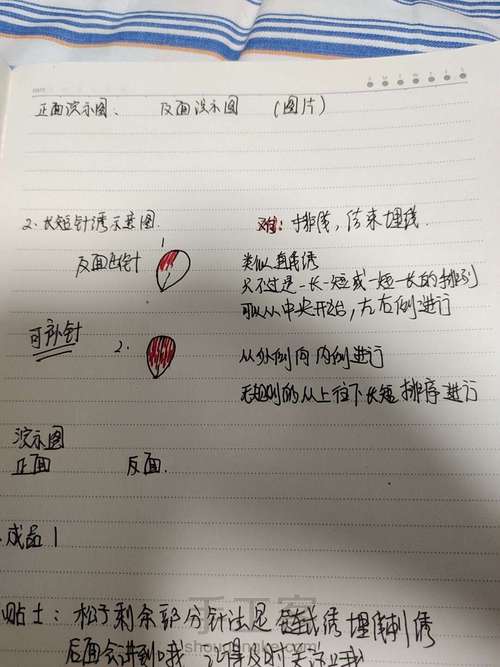 正面演示图、 反面演示图 (图片)
2、长短针绣示意图
排线,结束埋线
反面连针 1
类似直线绣
只不过是一长一短或一短一长的排列
可以从中央开始,左右侧进行
可补针 2.
从外侧向内侧进行
无规则的从上往下长短排序进行
演示图
正面 反面.
成品1
贴士:松子剩余部分针法是链式绣 埋 绣
后面会讲到哦
手工客